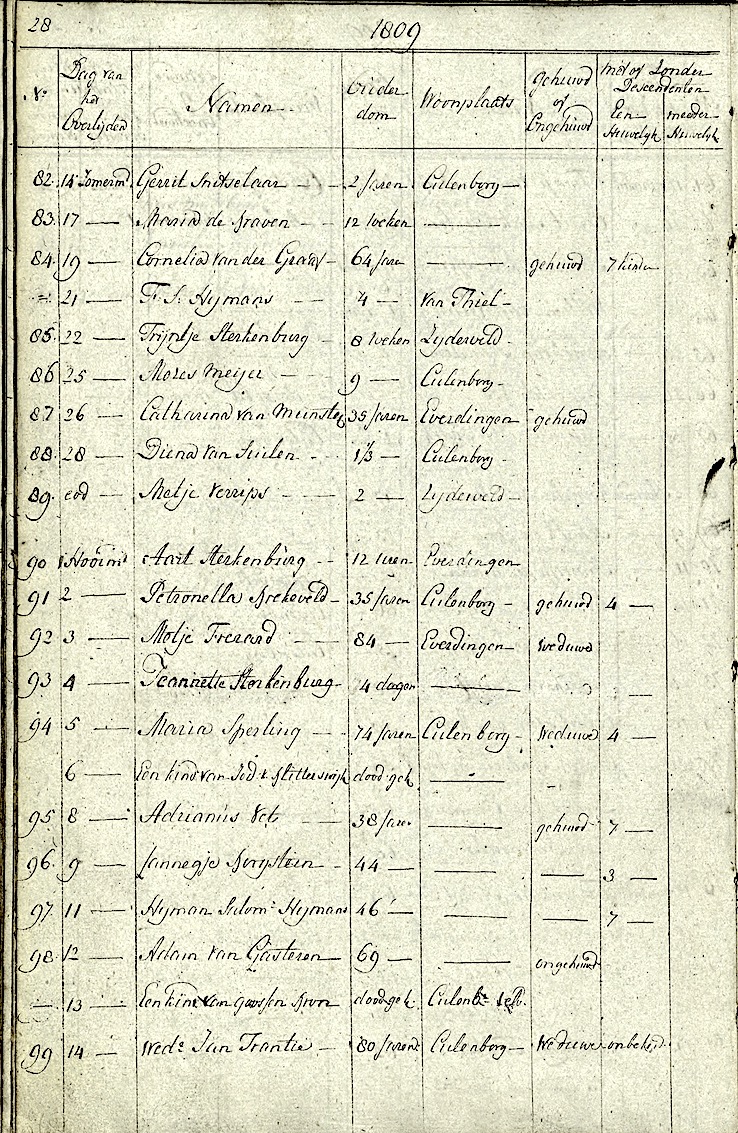 28 1809
No. Dag van het Overlijden Namen Ouderdom Woonplaats gehuwd of Ongehuwd met of Zonder Descendenten
Een Huwelyk meeder Huwelyk
82. 15 Zomerm. Gerrit Snitselaar — 2 Jaren Culenborg —
83. 17 — Maria de Kraven — 12 weken —
84. 19 — Cornelia van der Graaf — 64 Jare — gehuwd 7 kinder
21 — F. S. Hymans — 4 — van Thiel —
85. 22 — Trijntje Sterkenburg — 8 weken Zyderveld —
86 25 — Mozes Meijer — 9 — Culenborg —
87. 26 — Catharina van Munster 35 Jaren Everdingen gehuwd
88. 28 — Diena van Suilen — 1/3 — Culenborg —
89. eod — Metje Verrips — 2 — Zyderveld —
90 1 Hooim. Aart Sterkenburg — 12 uren Everdingen
91 2 — Petronella Brekeveld — 35 Jaren Culenborg — gehuwd 4 —
92 3 — Metje Frezard — 84 — Everdingen — Weduwe
93 4 — Jeannette Sterkenburg — 4 dagen — —
94 5 — Maria Sperling — 74 Jaren Culenborg — Weduwe 4 —
6 — Een kind van dood geb. —
95 8 — Adrianus Vet — 38 Jare — gehuwd 7 —
96. 9 — Jannegje — 44 — — — 3 —
97. 11 — Hyman Salom. Hymans 46 — — — 7 —
98. 12 — Adam van Gasteren — 69 — — ongehuwd
— 13 — Een kind van Goossen doodgeb. Culenb.
99 14 — Wede. Jan Trantie — 80 Jaren Culenborg — Weduwe onbekend